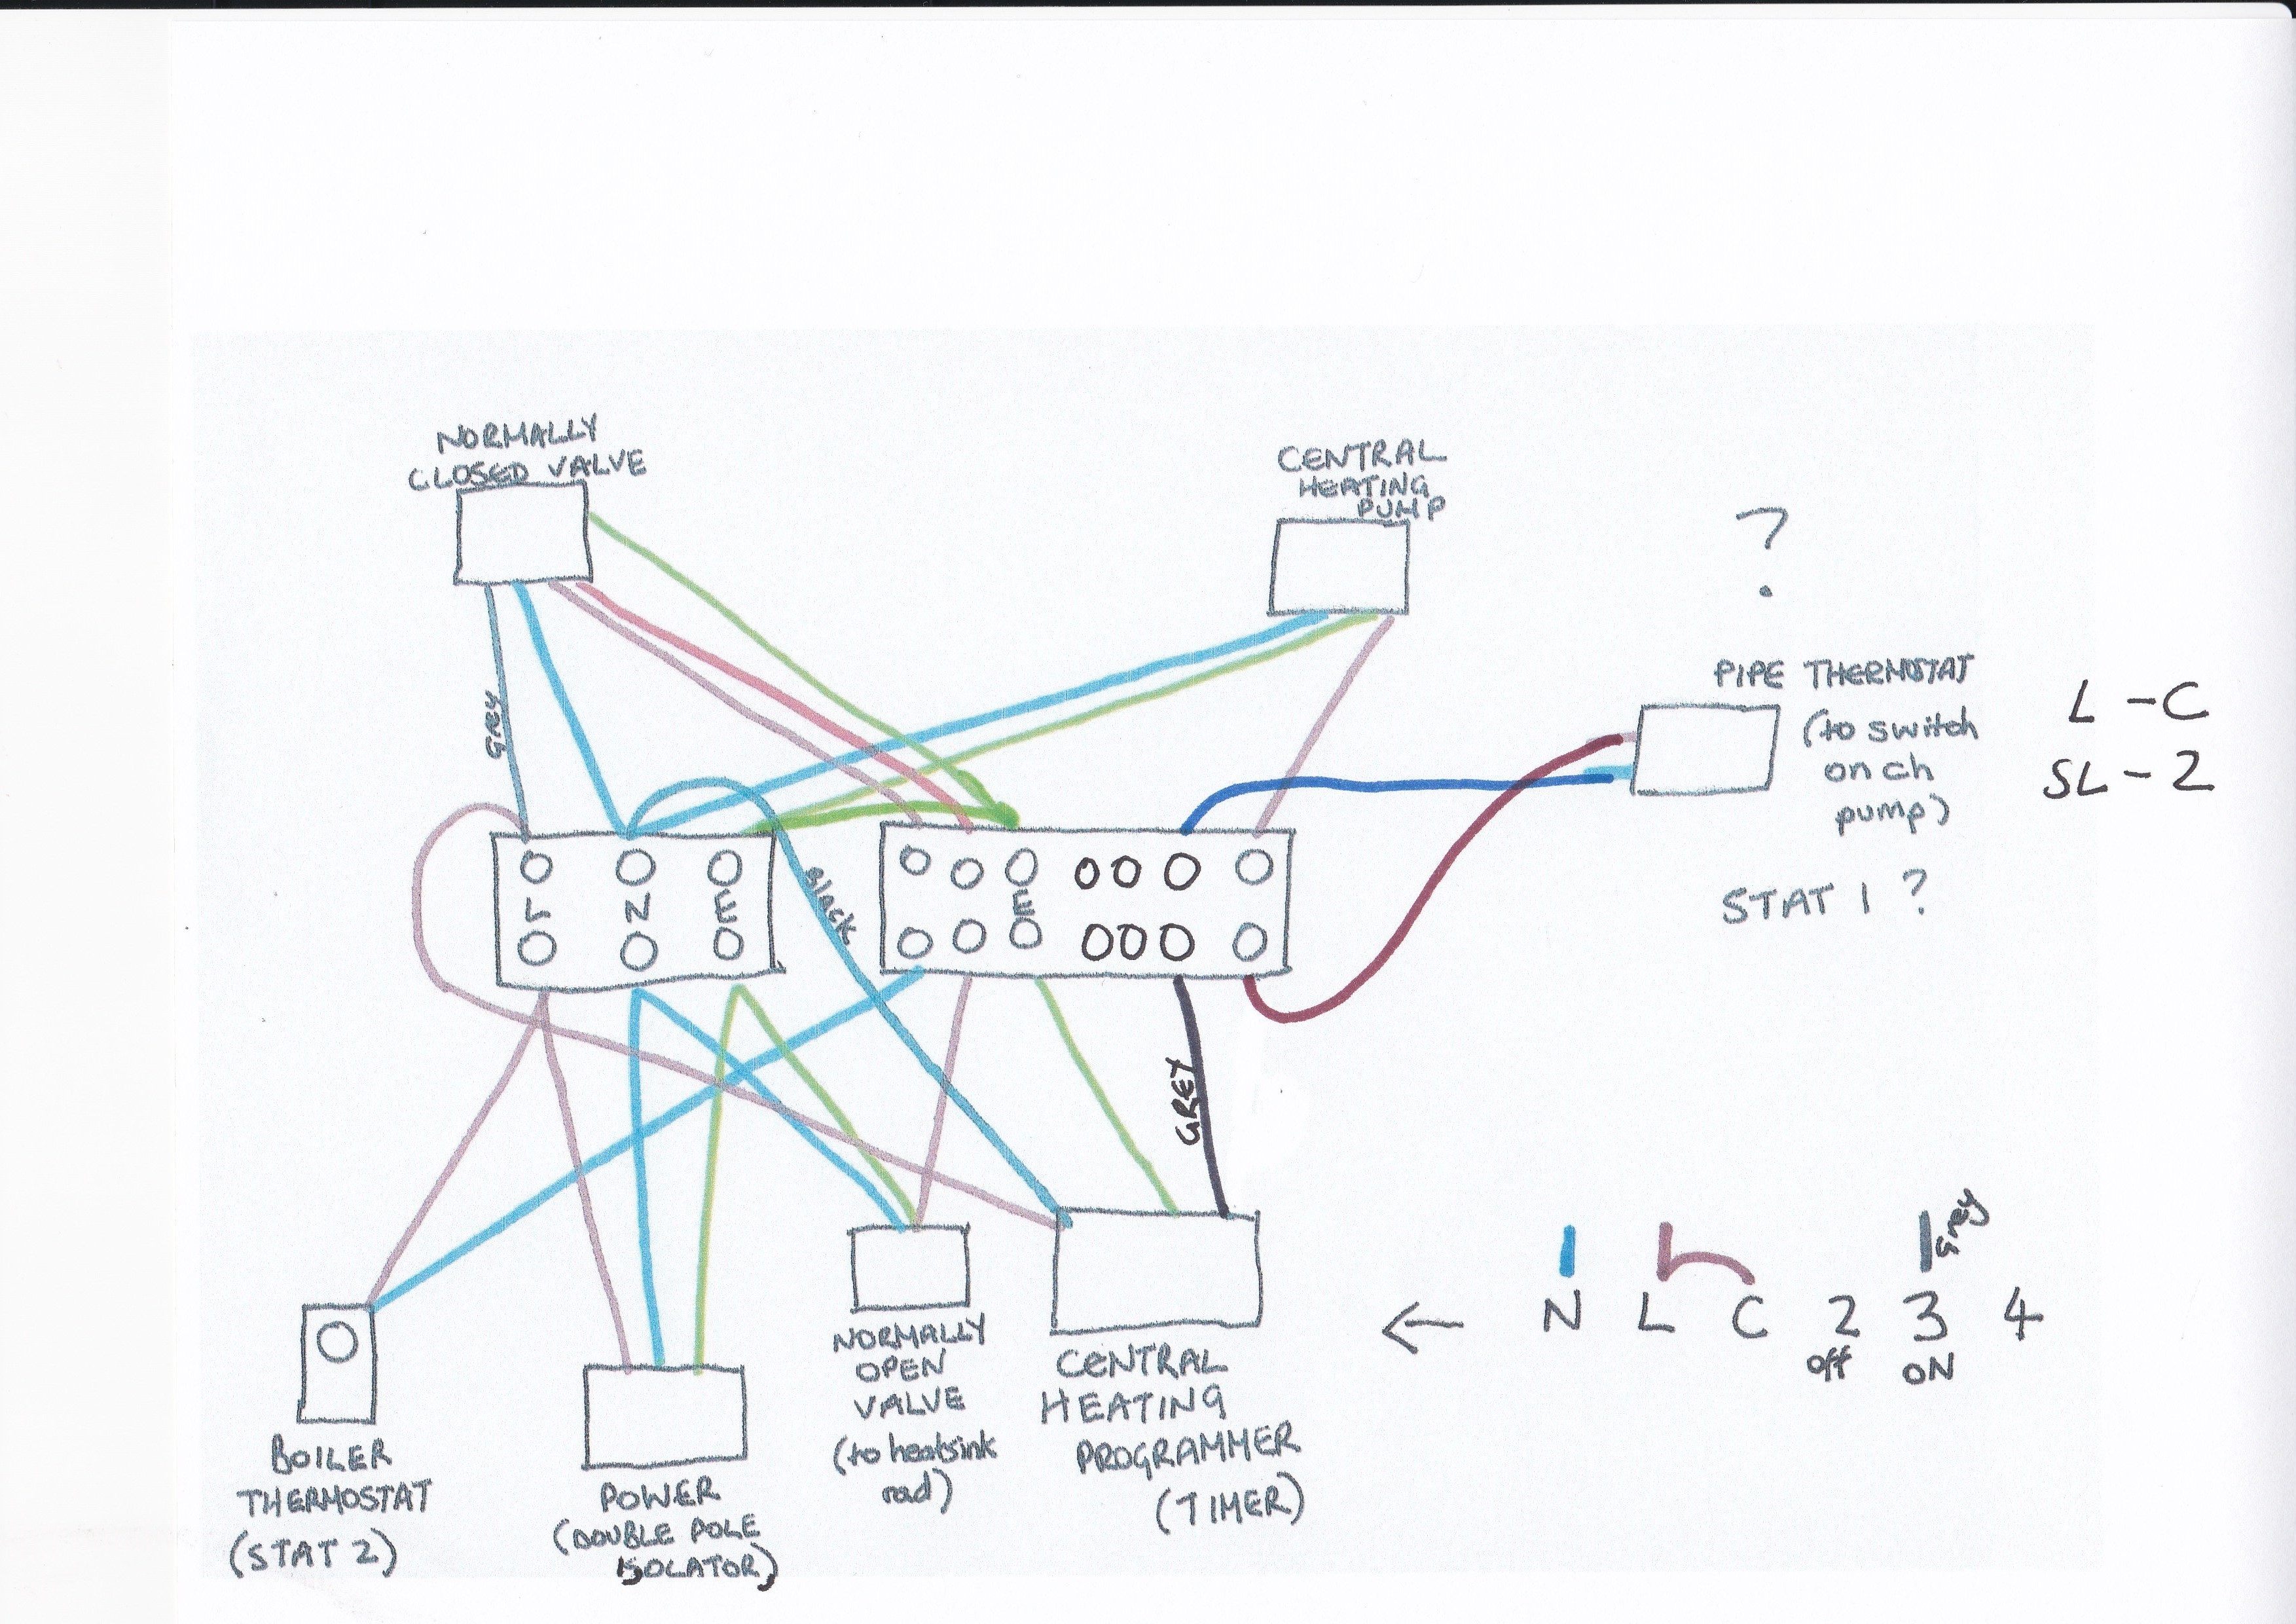 NORMALLY
CLOSED VALVE
CENTRAL
HEATING
PUMP
?
PIPE THERMOSTAT
(to switch
on ch
pump)
L - C
SL - 2
STAT 1 ?
GREY
Black
L
N
E
E
GREY
Grey
N L C 2 3 4
off
ON
←
BOILER
THERMOSTAT
(STAT 2)
POWER
(DOUBLE POLE
ISOLATOR)
NORMALLY
OPEN
VALVE
(to heatsink
rad)
CENTRAL
HEATING
PROGRAMMER
(TIMER)